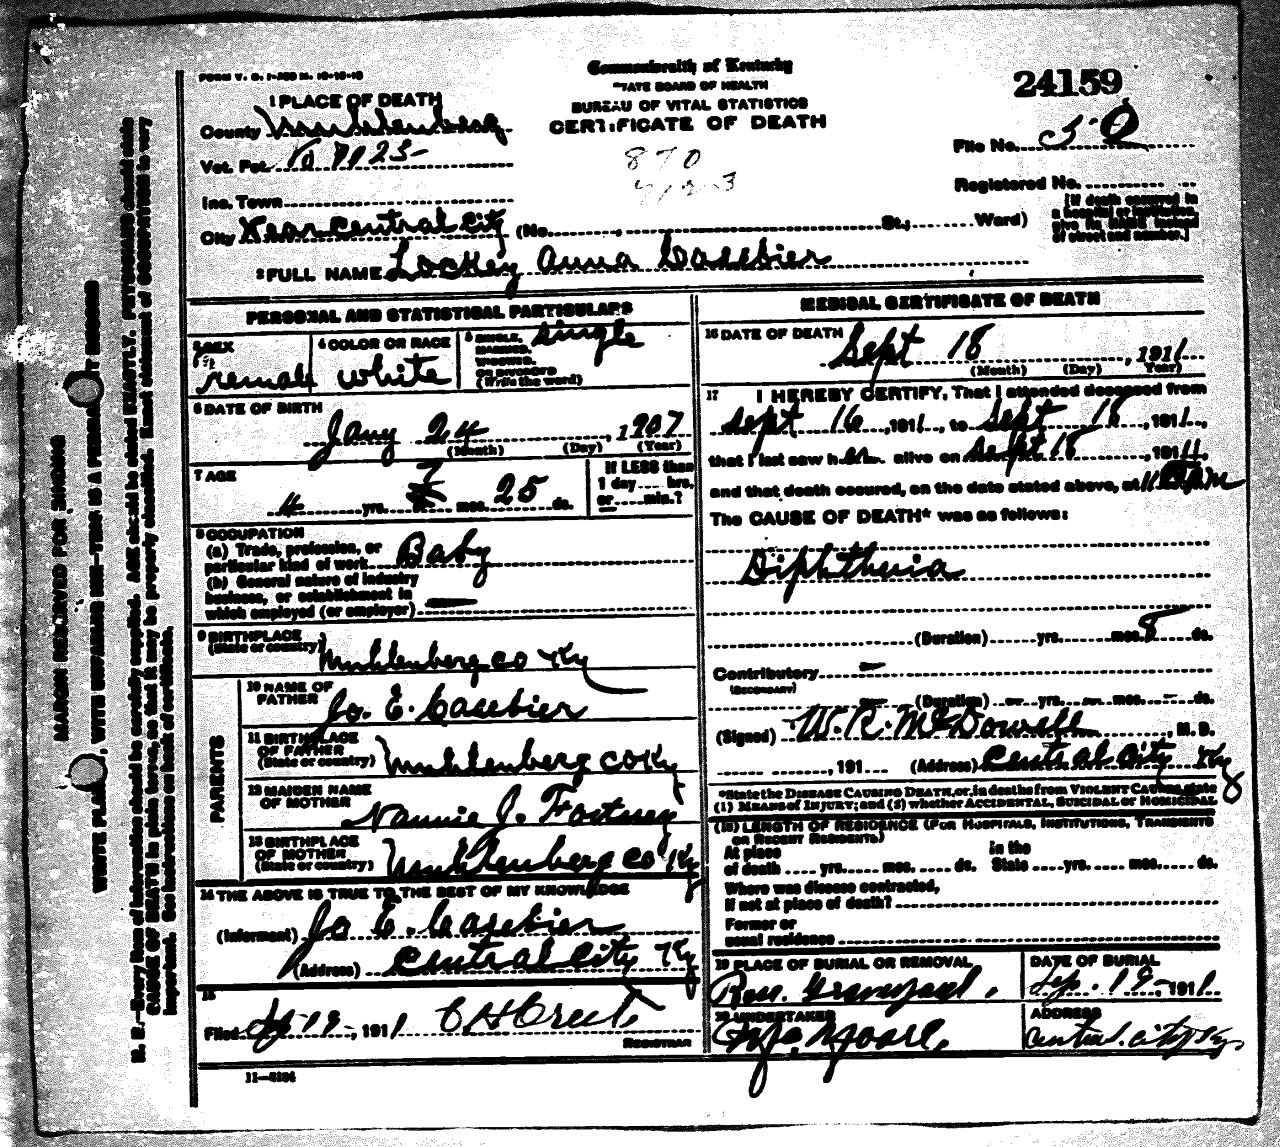 FORM V. S. 1-
Commonwealth of Kentucky
STATE BOARD OF HEALTH
BUREAU OF VITAL STATISTICS
CERTIFICATE OF DEATH
24159
1 PLACE OF DEATH
County Muhlenberg
Vot. Pct.
Inc. Town
City Near Central City (No. St.; Ward)
870
File No. 50
Registered No.
[If death occurred in
a hospital or institution
give its NAME instead
of street and number.]
2 FULL NAME Lockey Anna Casebier
PERSONAL AND STATISTICAL PARTICULARS
3 SEX
Female
4 COLOR OR RACE
white
5 SINGLE,
MARRIED,
WIDOWED,
OR DIVORCED
(Write the word)
single
6 DATE OF BIRTH
Jany 24, 1907
(Month) (Day) (Year)
7 AGE
4 yrs. 7 mos. 25 ds.
If LESS than
1 day hrs.
or min.?
8 OCCUPATION
(a) Trade, profession, or
particular kind of work Baby
(b) General nature of industry
business, or establishment in
which employed (or employer) —
9 BIRTHPLACE
(State or country) Muhlenberg co Ky
PARENTS
10 NAME OF
FATHER Jo. E. Casebier
11 BIRTHPLACE
OF FATHER
(State or country) Muhlenberg co Ky
12 MAIDEN NAME
OF MOTHER Nannie J. Fortney
13 BIRTHPLACE
OF MOTHER
(State or country) Muhlenberg co Ky
14 THE ABOVE IS TRUE TO THE BEST OF MY KNOWLEDGE
(Informant) Jo E. Casebier
(Address) Central City Ky
15
Filed Sep 19, 1911
REGISTRAR
11-
MEDICAL CERTIFICATE OF DEATH
16 DATE OF DEATH
Sept 18, 1911
(Month) (Day) (Year)
17 I HEREBY CERTIFY, That I attended deceased from
Sept 16, 1911, to Sept 18, 1911,
that I last saw her alive on Sept 18, 1911,
and that death occured, on the date stated above, at 11 pm
The CAUSE OF DEATH* was as follows:
Diphtheria
(Duration) yrs. mos. 8 ds.
Contributory —
(SECONDARY)
(Duration) — yrs. — mos. — ds.
(Signed) W. R. McDowell, M. D.
, 191 (Address) Central City Ky
*State the DISEASE CAUSING DEATH, or, in deaths from VIOLENT CAUSES, state
(1) MEANS OF INJURY; and (2) whether ACCIDENTAL, SUICIDAL or HOMICIDAL
(18) LENGTH OF RESIDENCE (FOR HOSPITALS, INSTITUTIONS, TRANSIENTS
OR RECENT RESIDENTS)
At place in the
of death yrs. mos. ds. State yrs. mos. ds.
Where was disease contracted,
If not at place of death?
Former or
usual residence
19 PLACE OF BURIAL OR REMOVAL
Graveyard.
DATE OF BURIAL
Sep. 19, 1911
20 UNDERTAKER
Moore.
ADDRESS
Central City Ky.
MARGIN RESERVED FOR BINDING
WRITE PLAINLY, WITH UNFADING INK—THIS IS A PERMANENT RECORD
N. B.—Every item of information should be carefully supplied. AGE should be stated EXACTLY. PHYSICIANS should state
CAUSE OF DEATH in plain terms, so that it may be properly classified. Exact statement of OCCUPATION is very
important. See instructions on back of certificate.